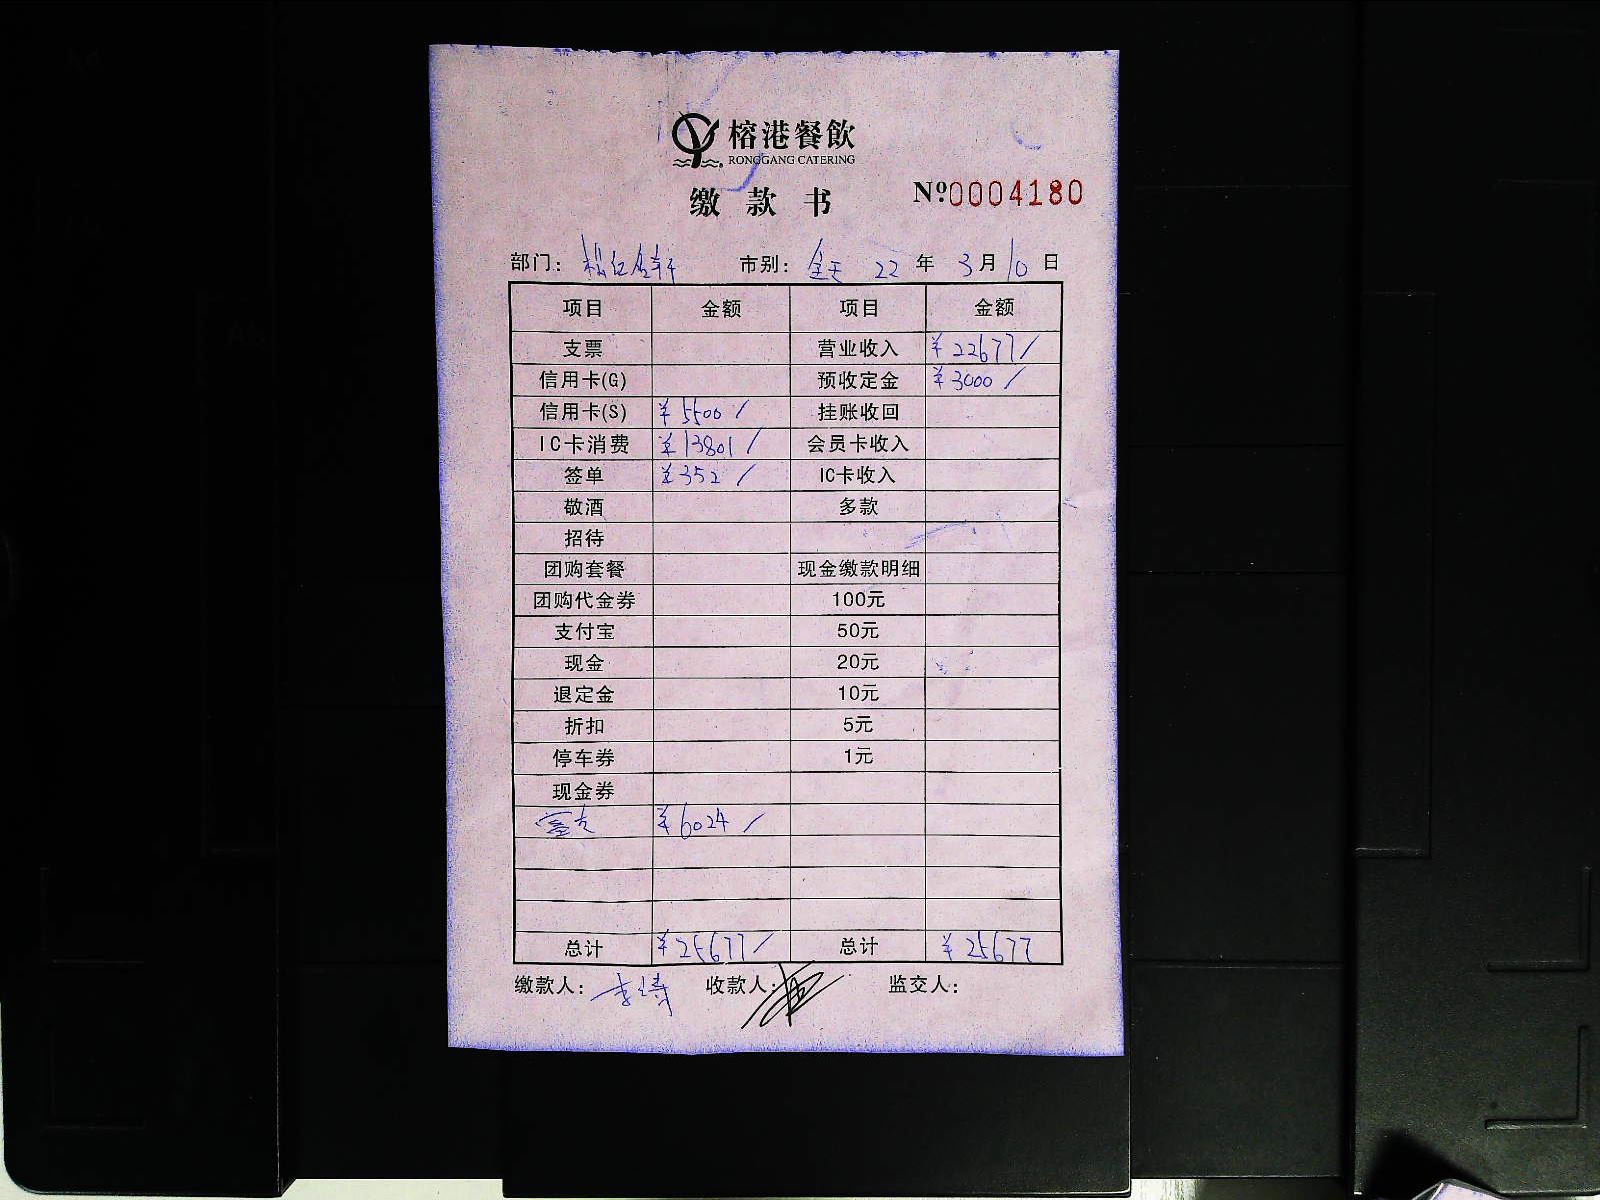 榕港餐飲
RONGGANG CATERING
缴款书
Nº 0004180
部门： 市别：全天 22年3月10日
项目 金额 项目 金额
支票 营业收入 ¥22677/
信用卡(G) 预收定金 ¥3000/
信用卡(S) ¥5500/ 挂账收回
IC卡消费 ¥13801/ 会员卡收入
签单 ¥352/ IC卡收入
敬酒 多款
招待
团购套餐 现金缴款明细
团购代金券 100元
支付宝 50元
现金 20元
退定金 10元
折扣 5元
停车券 1元
现金券
¥6024/
总计 ¥25677/ 总计 ¥25677
缴款人：李涛 收款人： 监交人：